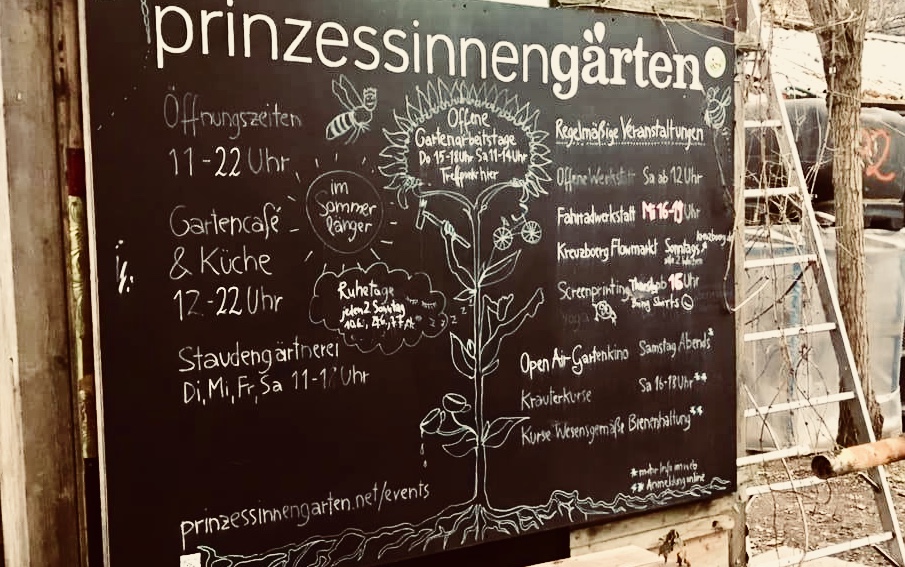 prinzessinnengärten
Öffnungszeiten
11-22 Uhr
Gartencafé
& Küche
12-22 Uhr
Staudengärtnerei
Di, Mi, Fr, Sa 11-1 Uhr
prinzessinnengarten.net/events
im
Sommer
länger
Ruhetage
jeden 2 Sonntag
Offene
Gartenarbeitstage
Do 15-18Uhr Sa 11-14Uhr
Treffpunkt hier
Regelmäßige Veranstaltungen
Offene Werkstatt Sa ab 12 Uhr
Fahrradwerkstatt Mi 16-19 Uhr
Kreuzboerg Flowmarkt Sonntags
Screenprinting ab 16 Uhr
Bring Shirts
yoga
Open Air-Gartenkino Samstag Abends*
Kräuterkurse Sa 16-18 Uhr**
Kurse Wesensgemäße Bienenhaltung**
* mehr Info im web
** Anmeldung online